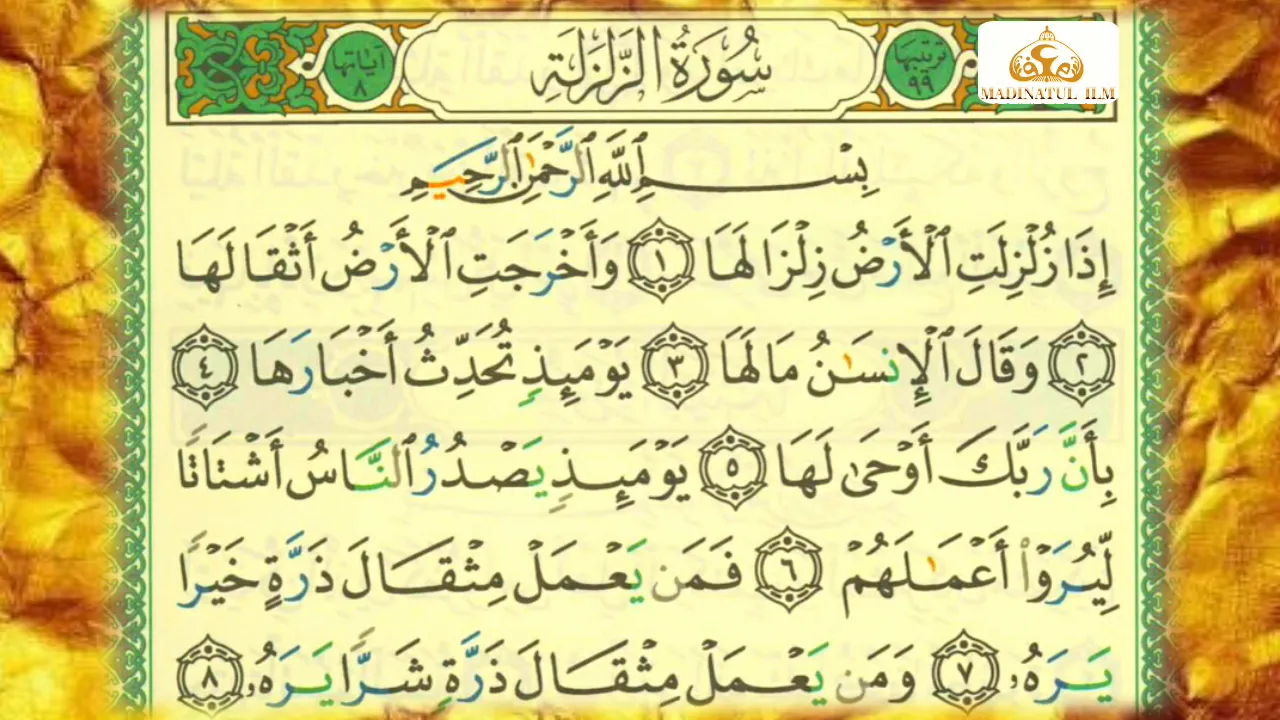 ترتيبها ٩٩ سُورَةُ الزَّلْزَلَةِ آياتها ٨
MADINATUL ILM
بِسْمِ ٱللَّهِ ٱلرَّحْمَٰنِ ٱلرَّحِيمِ
إِذَا زُلْزِلَتِ ٱلْأَرْضُ زِلْزَالَهَا ١ وَأَخْرَجَتِ ٱلْأَرْضُ أَثْقَالَهَا
٢ وَقَالَ ٱلْإِنسَٰنُ مَا لَهَا ٣ يَوْمَئِذٍ تُحَدِّثُ أَخْبَارَهَا ٤
بِأَنَّ رَبَّكَ أَوْحَىٰ لَهَا ٥ يَوْمَئِذٍ يَصْدُرُ ٱلنَّاسُ أَشْتَاتًا
لِّيُرَوْا۟ أَعْمَٰلَهُمْ ٦ فَمَن يَعْمَلْ مِثْقَالَ ذَرَّةٍ خَيْرًا
يَرَهُۥ ٧ وَمَن يَعْمَلْ مِثْقَالَ ذَرَّةٍ شَرًّا يَرَهُۥ ٨